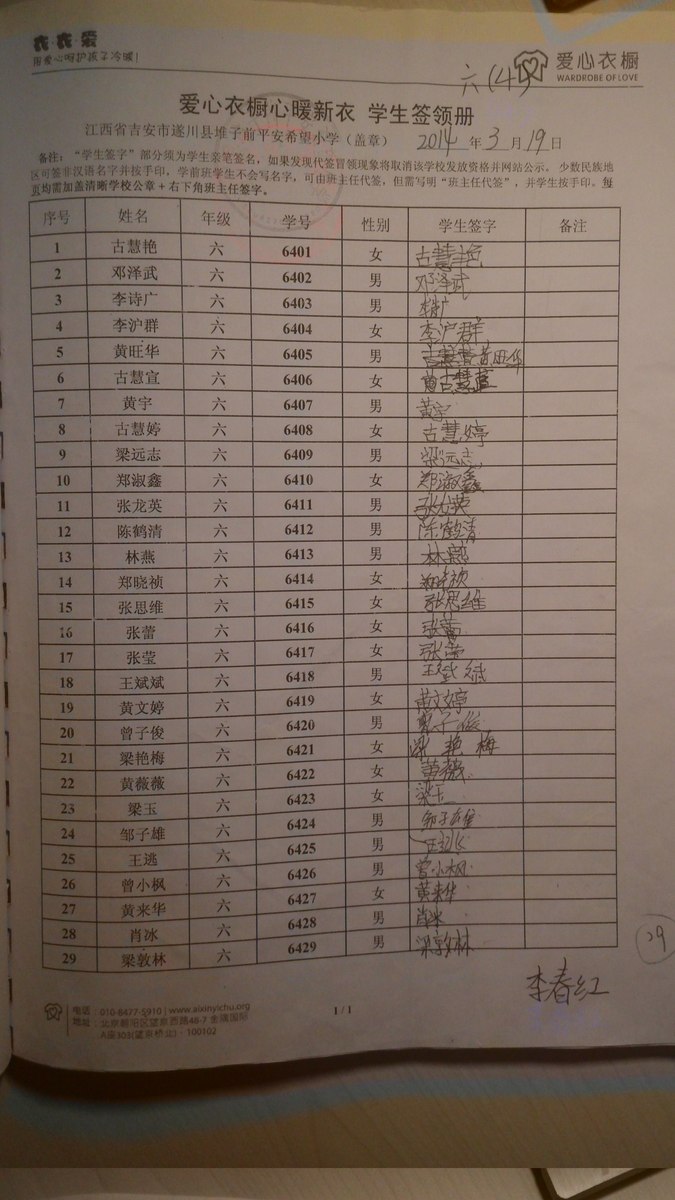 衣·衣·爱
用爱心呵护孩子冷暖!
爱心衣橱
WARDROBE OF LOVE
六(4)
爱心衣橱心暖新衣 学生签领册
江西省吉安市遂川县堆子前平安希望小学(盖章) 2014 年 3 月 19 日
备注:“学生签字”部分须为学生亲笔签名,如果发现代签冒领现象将取消该学校发放资格并网站公示。 少数民族地
区可签非汉语名字并按手印,学前班学生不会写名字,可由班主任代签,但需写明“班主任代签”,并学生按手印。每
页均需加盖清晰学校公章+右下角班主任签字。
序号 姓名 年级 学号 性别 学生签字 备注
1 古慧艳 六 6401 女 古慧艳
2 邓泽武 六 6402 男 邓泽武
3 李诗广 六 6403 男 李诗广
4 李沪群 六 6404 女 李沪群
5 黄旺华 六 6405 男 黄旺华
6 古慧宣 六 6406 女
7 黄宇 六 6407 男 黄宇
8 古慧婷 六 6408 女 古慧婷
9 梁远志 六 6409 男 梁远志
10 郑淑鑫 六 6410 女 郑淑鑫
11 张龙英 六 6411 男 张龙英
12 陈鹤清 六 6412 男 陈鹤清
13 林燕 六 6413 男 林燕
14 郑晓祯 六 6414 女 郑晓祯
15 张思维 六 6415 女 张思维
16 张蕾 六 6416 女 张蕾
17 张莹 六 6417 女 张莹
18 王斌斌 六 6418 男 王斌斌
19 黄文婷 六 6419 女 黄文婷
20 曾子俊 六 6420 男 曾子俊
21 梁艳梅 六 6421 女 梁艳梅
22 黄薇薇 六 6422 女 黄薇
23 梁玉 六 6423 女 梁玉
24 邹子雄 六 6424 男 邹子雄
25 王逃 六 6425 男
26 曾小枫 六 6426 男 曾小枫
27 黄来华 六 6427 女 黄来华
28 肖冰 六 6428 男 肖冰
29 梁敦林 六 6429 男 梁敦林
29
李春红
电话:010-8477-5910 | www.aixinyichu.org
地址:北京朝阳区望京西路48-7 金隅国际
A座303(望京桥业)- 100102
1 / 1